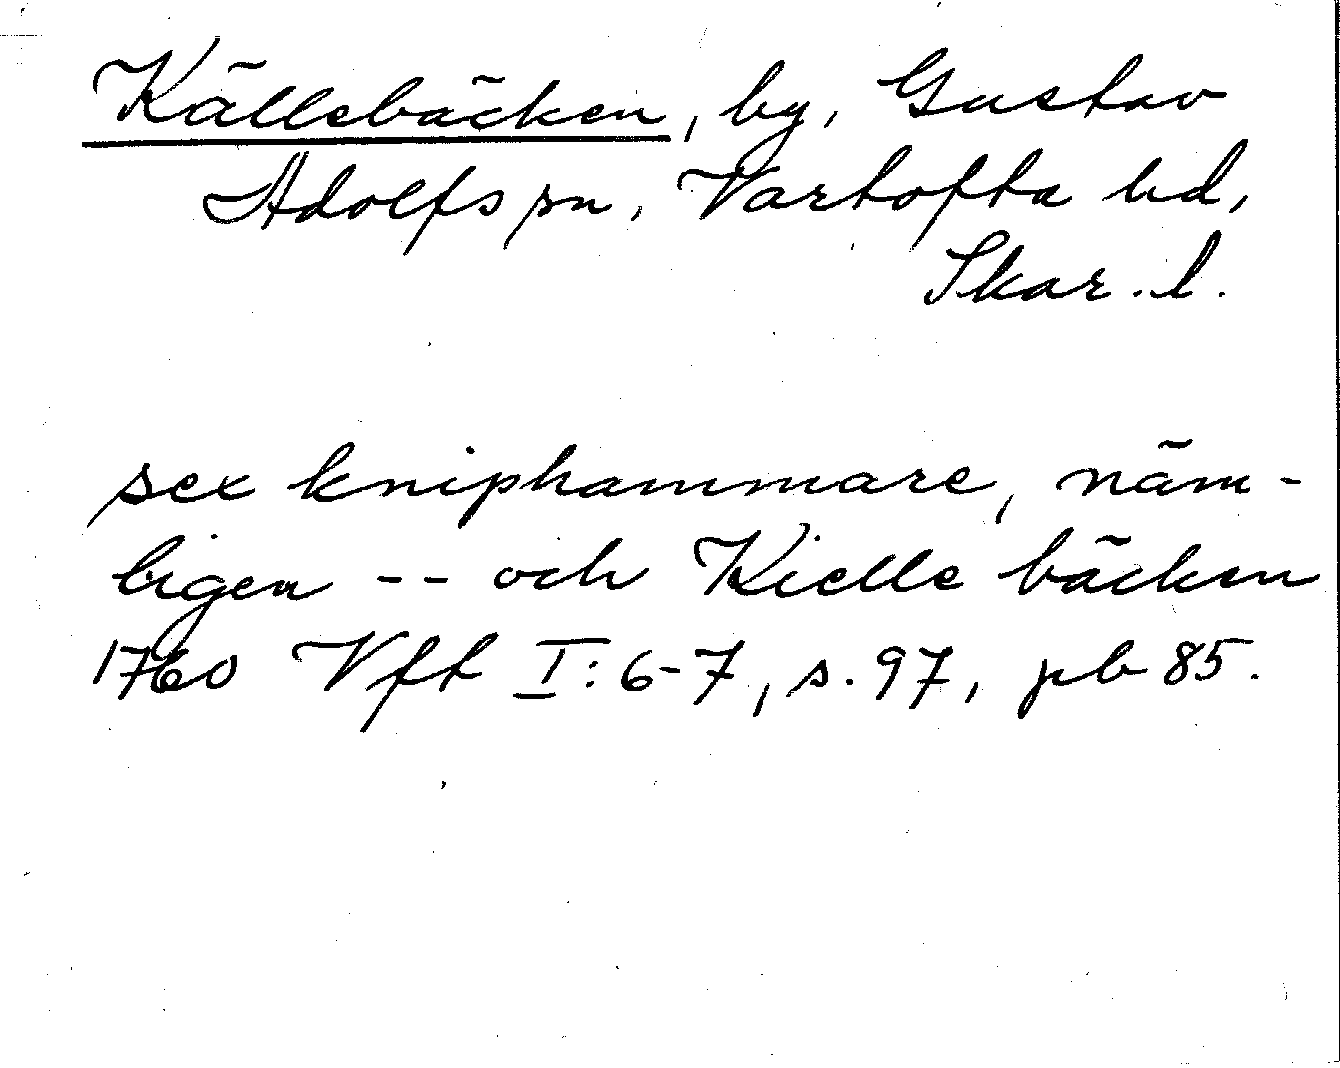 Källebäcken, by, Gustav
Adolfs sn, Vartofta hd,
Skar. l.
sex kniphammare, näm-
ligen -- och Kielle bäcken
1760 Vft I:6-7, s. 97, pb 85.